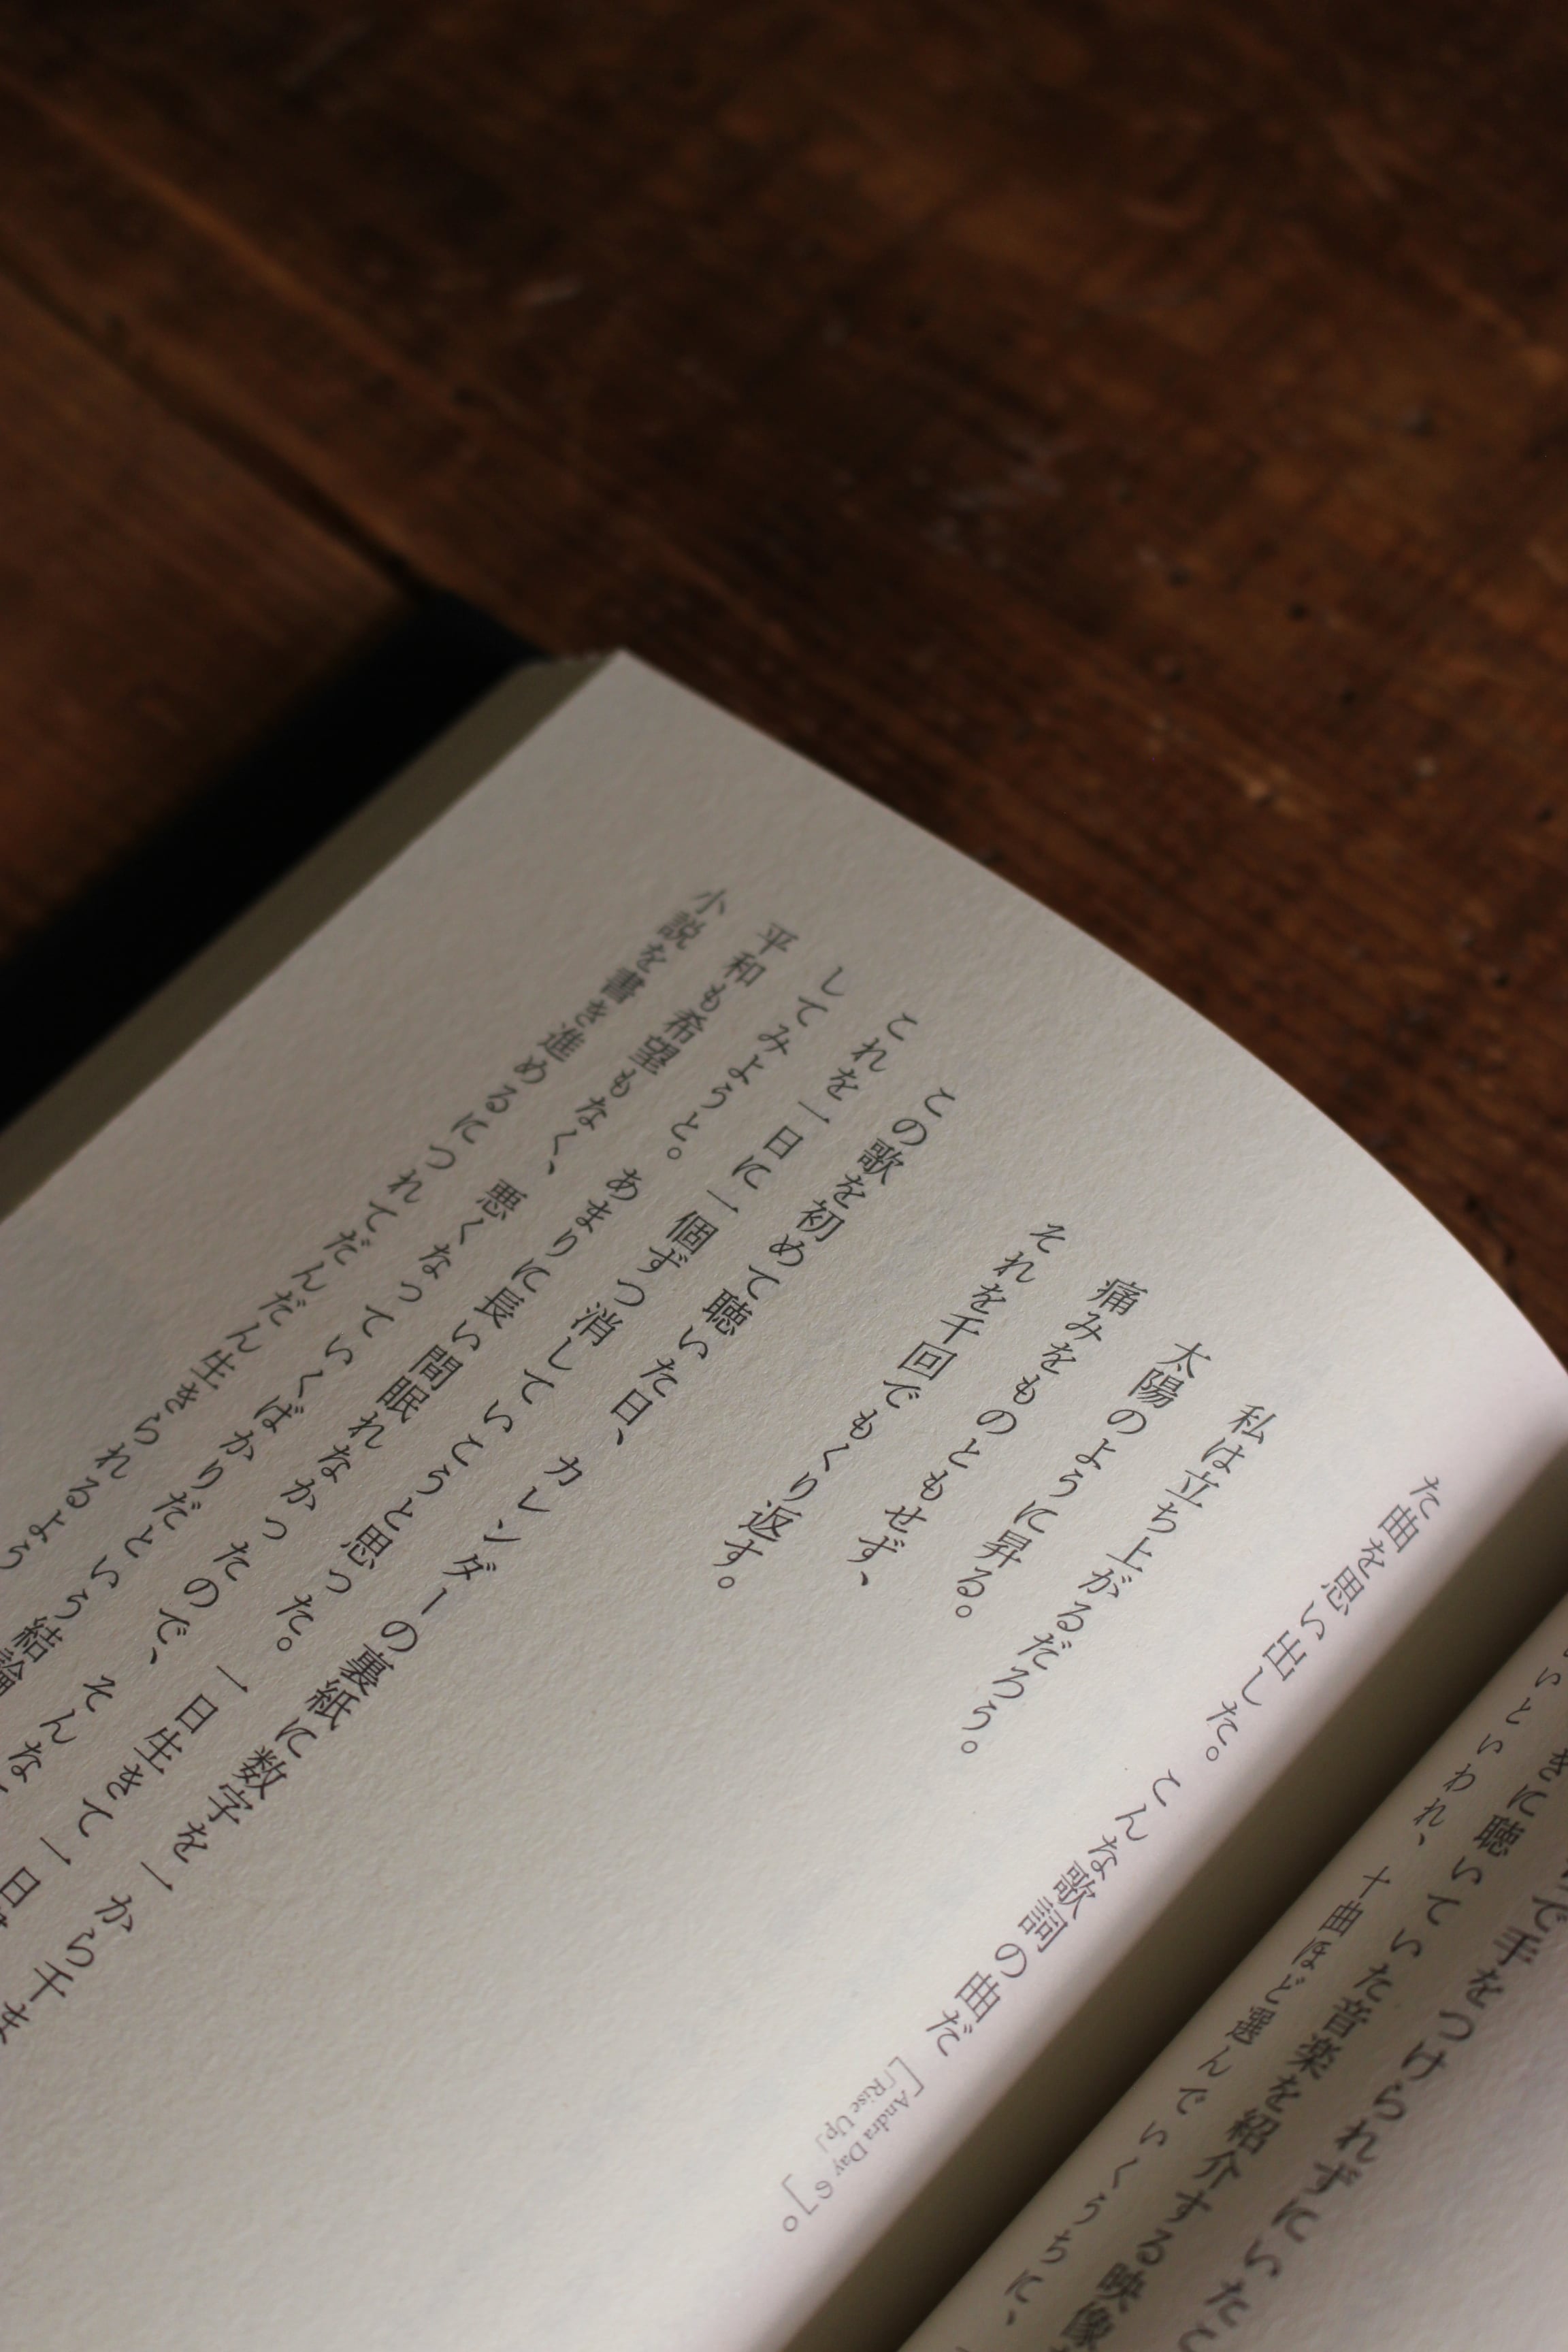 で手をつけられずにいたこ
きに聴いていた音楽を紹介する映像
いといわれ、十曲ほど選んでいくうちに、
た曲を思い出した。こんな歌詞の曲だ［Andra Dayの「Rise Up」］。
私は立ち上がるだろう。
太陽のように昇る。
痛みをものともせず、
それを千回でもくり返す。
この歌を初めて聴いた日、カレンダーの裏紙に数字を一から千ま
これを一日に一個ずつ消していこうと思った。一日生きて一日
してみようと。あまりに長い間眠れなかったので、そんな
平和も希望もなく、悪くなっていくばかりだという結論
小説を書き進めるにつれてだんだん生きられるよう